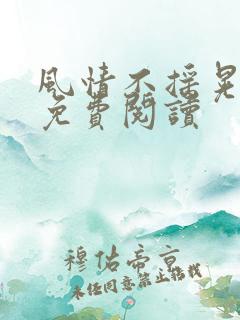 風情不摇晃
免費閱讀
穆佑帝京
未经同意禁止转载